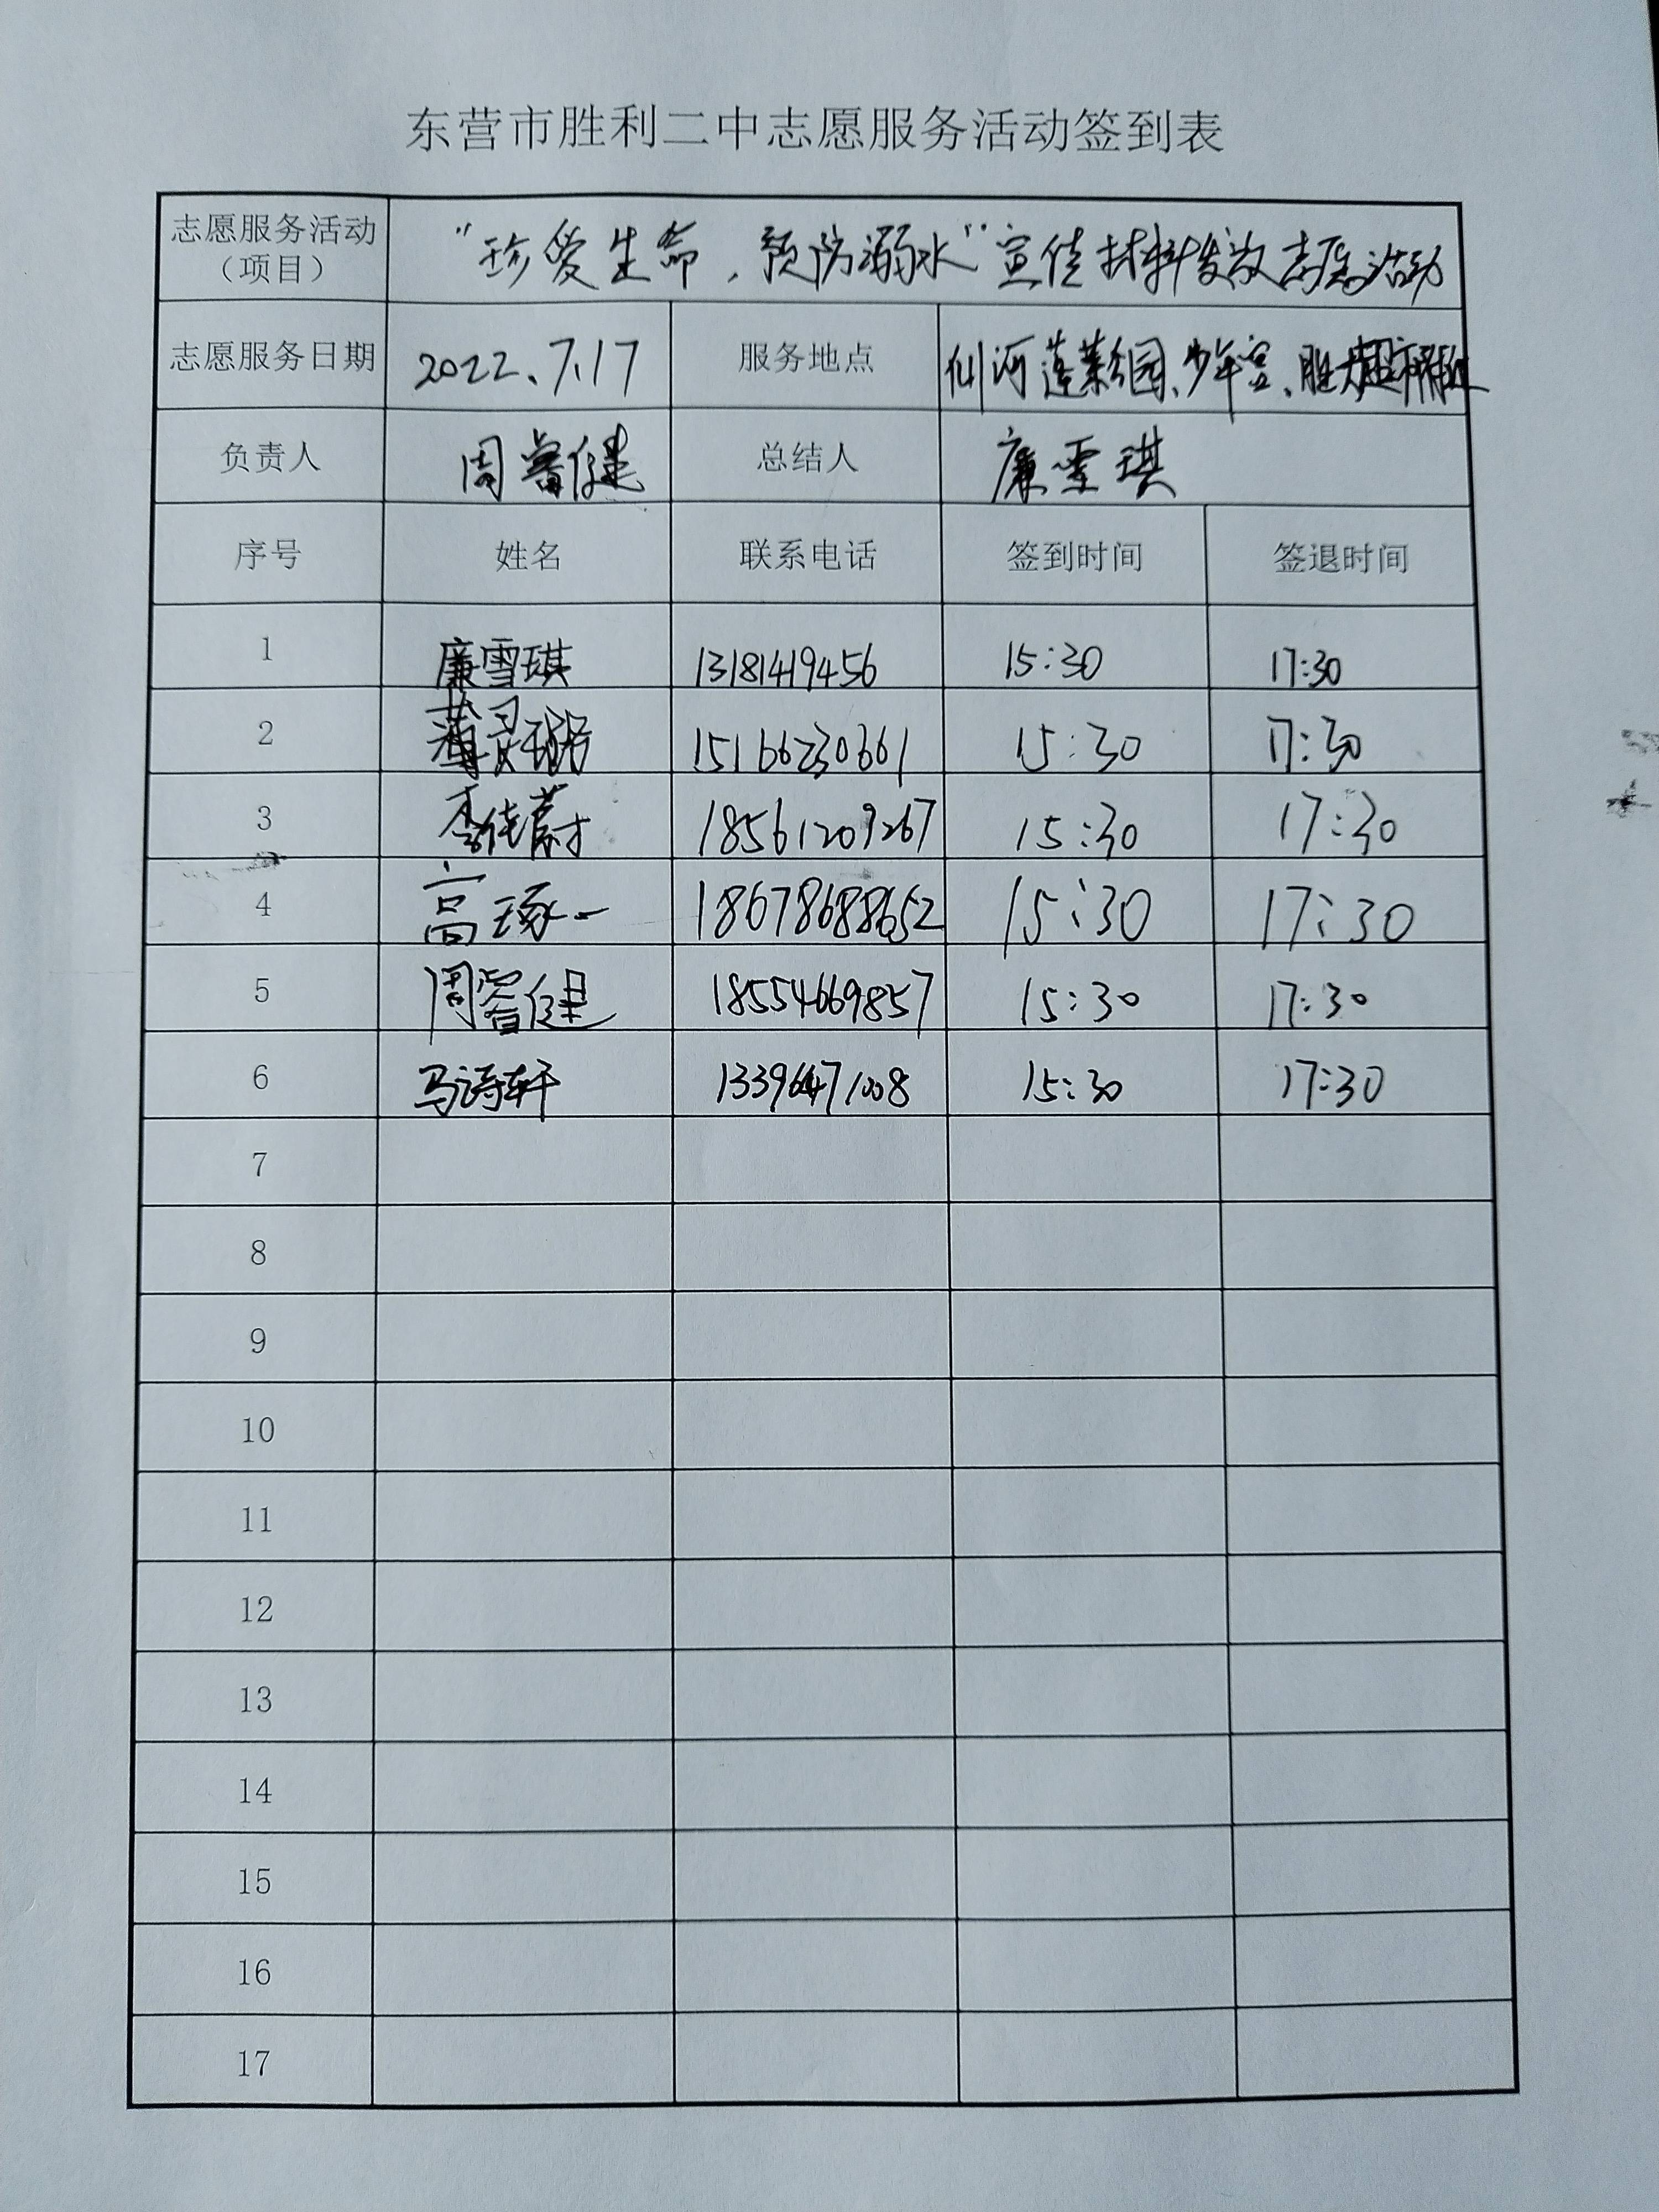 东营市胜利二中志愿服务活动签到表
志愿服务活动（项目） “珍爱生命，预防溺水”宣传材料发放志愿活动
志愿服务日期 2022.7.17 服务地点 仙河蓬莱公园、少年宫、胜大超市附近
负责人 周睿健 总结人 廉雪琪
序号 姓名 联系电话 签到时间 签退时间
1 廉雪琪 13181419456 15:30 17:30
2 薄灵璐 15166230661 15:30 17:30
3 李佳蔚 18561209267 15:30 17:30
4 高琢一 18678688652 15:30 17:30
5 周睿健 18554669857 15:30 17:30
6 马诗轩 13396471008 15:30 17:30
7
8
9
10
11
12
13
14
15
16
17